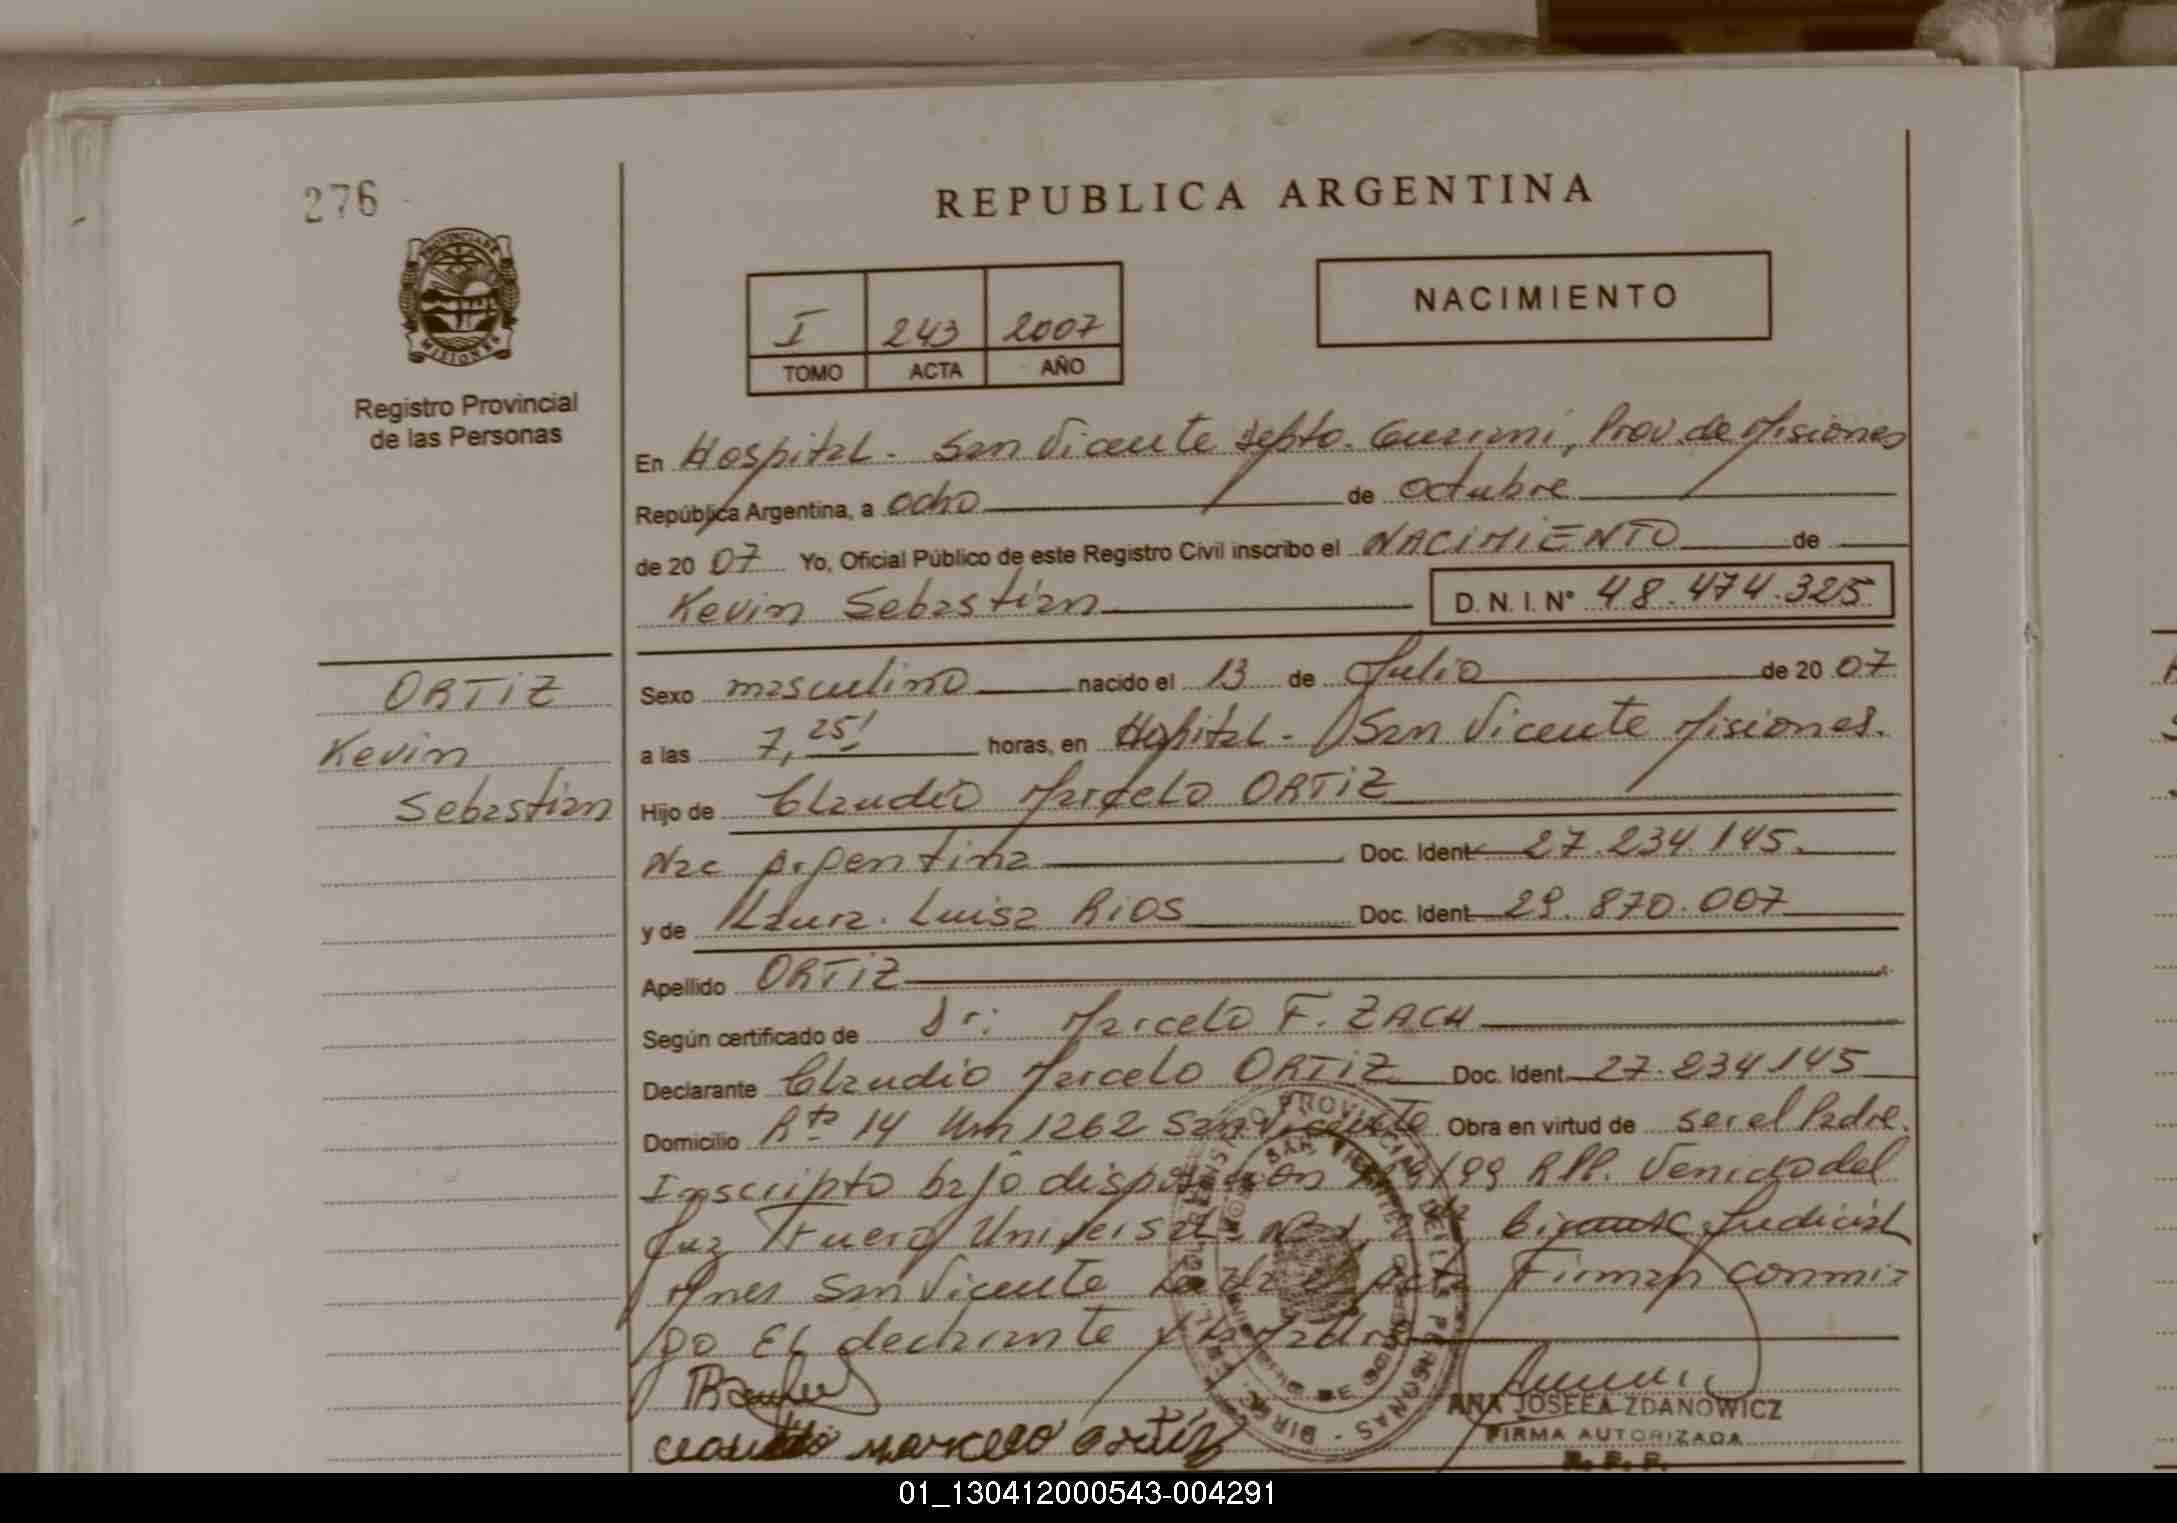 276
REPUBLICA ARGENTINA
PROVINCIA DE
MISIONES
Registro Provincial
de las Personas
I 243 2007
TOMO ACTA AÑO
NACIMIENTO
En Hospital - San Vicente Depto. Guarani, Prov. de Misiones
República Argentina, a ocho de octubre
de 20 07 Yo, Oficial Público de este Registro Civil inscribo el NACIMIENTO de
Kevin Sebastian
D. N. I. N° 48.474.325
ORTIZ
Kevin
Sebastian
Sexo masculino nacido el 13 de Julio de 20 07
a las 7,25' horas, en Hospital - San Vicente Misiones.
Hijo de Claudio Marcelo ORTIZ
Nac Argentina Doc. Ident 27.234.145.
y de Laura Luisa RIOS Doc. Ident 29.870.007
Apellido ORTIZ
Según certificado de Dr: Marcelo F. ZACH
Declarante Claudio Marcelo ORTIZ Doc. Ident. 27.234.145
Domicilio Rta 14 Km 1262 San Vicente Obra en virtud de ser el Padre.
Inscripto bajo disposicion /99 RPP. Venido del
Juz Fuero Universal Judicial
Mnes San Vicente Acta Firman conmi
go El declarante y la Madre
claudio marcelo ortiz
ANA JOSEFA ZDANOWICZ
FIRMA AUTORIZADA
R. P. P.
01_130412000543-004291